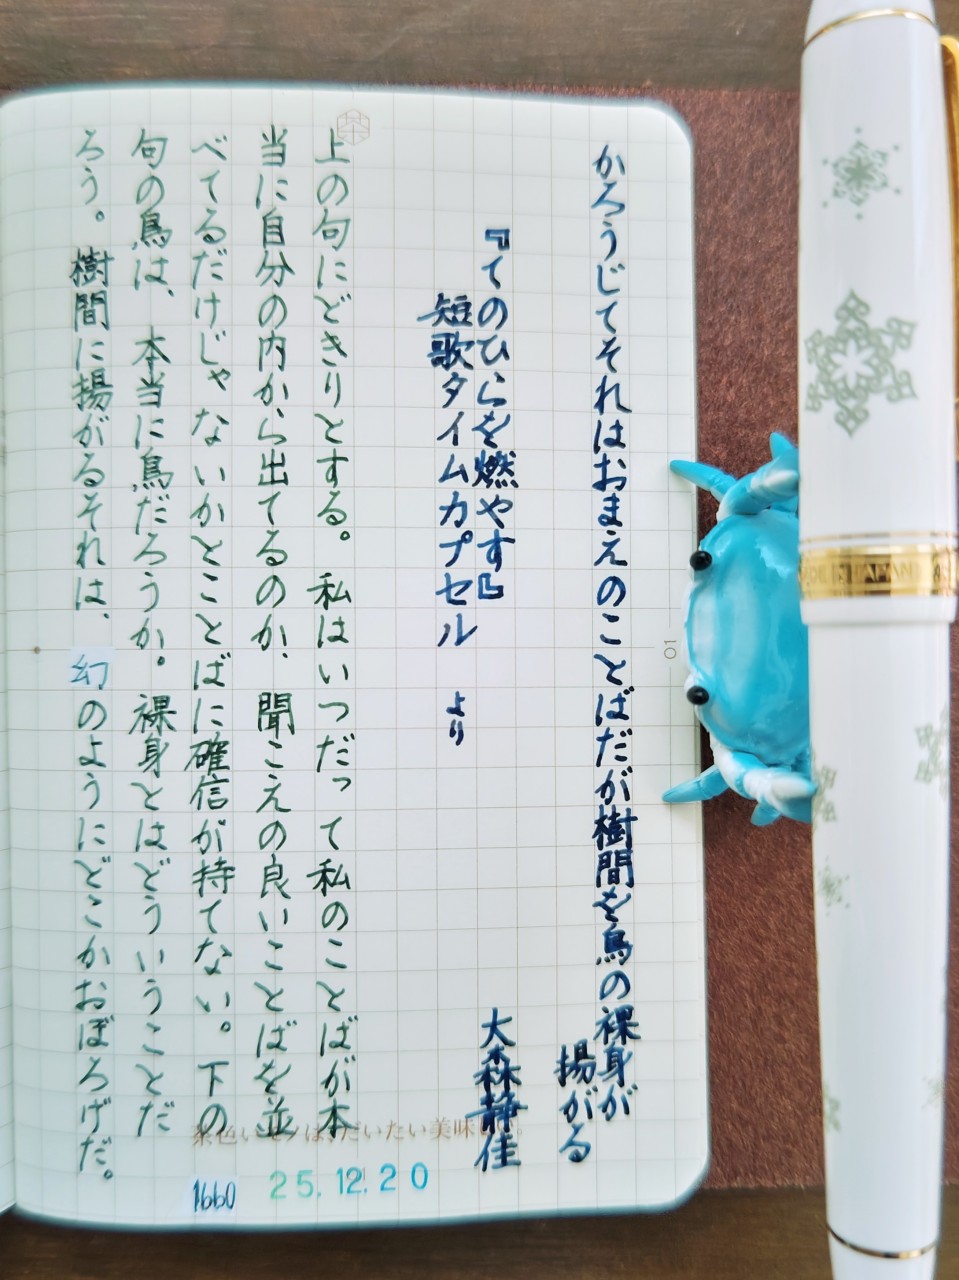 かろうじてそれはおまえのことばだが樹間を鳥の裸身が
揚がる
『てのひらを燃やす』 大森静佳
短歌タイムカプセル より
上の句にどきりとする。私はいつだって私のことばが本
当に自分の内から出てるのか、聞こえの良いことばを並
べてるだけじゃないかとことばに確信が持てない。下の
句の鳥は、本当に鳥だろうか。裸身とはどういうことだ
ろう。樹間に揚がるそれは、幻のようにどこかおぼろげだ。
1660
25.12.20
01